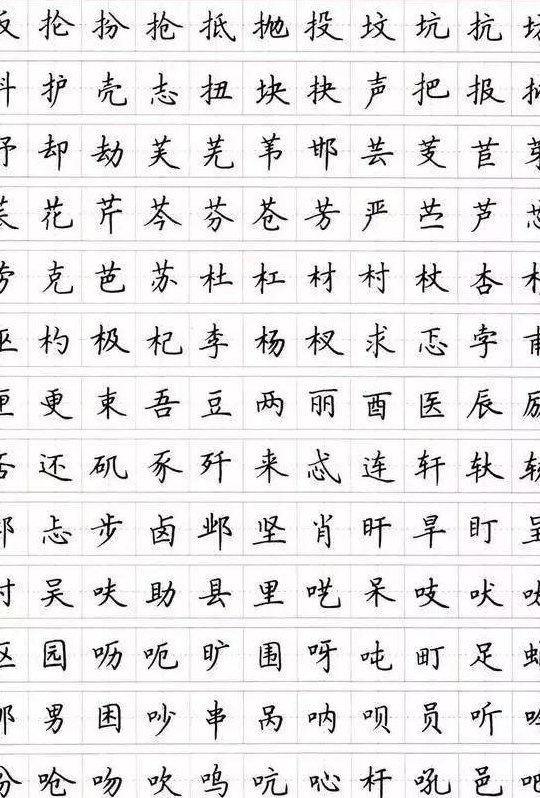 抡 扮 抢 抵 抛 投 坟 坑 抗 坊
抖 护 壳 志 扭 块 抉 声 把 报
抒 却 劫 芙 芜 苇 邯 芸 芰 苣 芽
花 芹 芩 芬 苍 芳 严 芦 芯
劳 克 芭 苏 杜 杠 材 村 杖 杏
巫 杓 极 杞 李 杨 杈 求 忑 孛 甫
匣 更 束 吾 豆 两 丽 酉 医 辰 励
否 还 矶 豕 歼 来 忒 连 轩 轪
忐 步 卤 邺 坚 肖 旰 旱 盯 呈
时 吴 呋 助 县 里 呓 呆 吱 吠
呕 园 呖 呃 旷 围 呀 吨 町 足
男 困 吵 串 呙 呐 呗 员 听 吟
吩 呛 吻 吹 呜 吭 吣 杆 吼 邑 吧